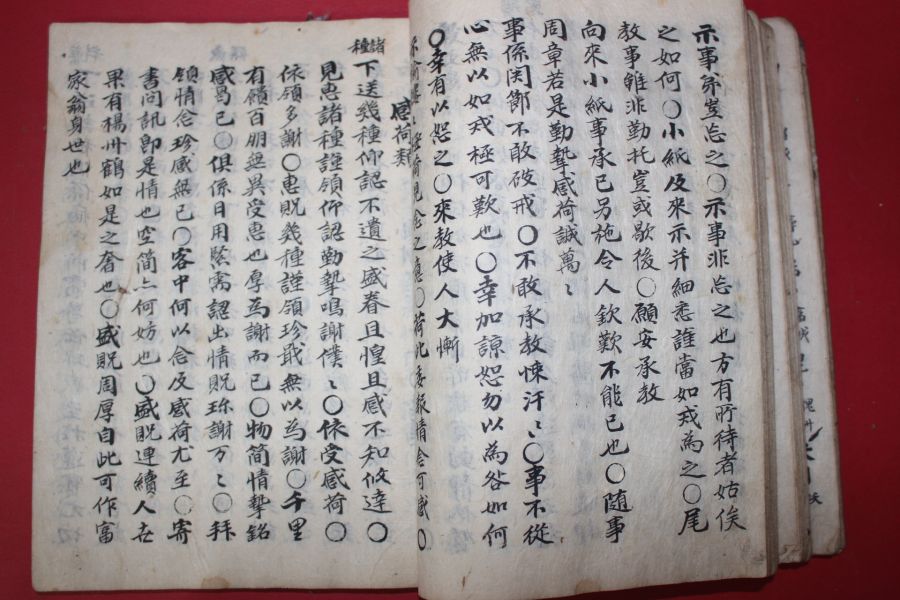 示事茅豈忘之〇示事非忘之也方有所待者姑俟
之如何〇小紙及來示并細悉誰當如戎為之〇尾
教事雖非勤托豈或歇後〇願安承教
向來小紙事承已另施令人欽歎不能已也〇随事
周章若是勤摯感荷誠萬〻
事係関節不敢破戒〇不敢承教悚汗〻〇事不從
心無以如戎極可歎也〇幸加諒恕勿以為咎如何
〇幸有以恕之〇來教使人大慚
感荷類
諸種下送幾種仰認不遺之盛眷且惶且感不知攸達〇
見惠諸種謹領仰認勤摯鳴謝僕〻〇依受感荷〇
依領多謝〇惠貺幾種謹領珍戢無以為謝〇千里
有饋百朋無異受惠也厚為謝而已〇物簡情摯銘
感曷已〇俱係日用緊需認出情貺珎謝万〻〇拜
領情念珍感無已〇客中何以念及感荷尤至〇寄
書問訊即是情也空簡亦何妨也〇盛貺連續人去
果有楊州鶴如是之奢也〇盛貺周厚自此可作富
家翁身世也